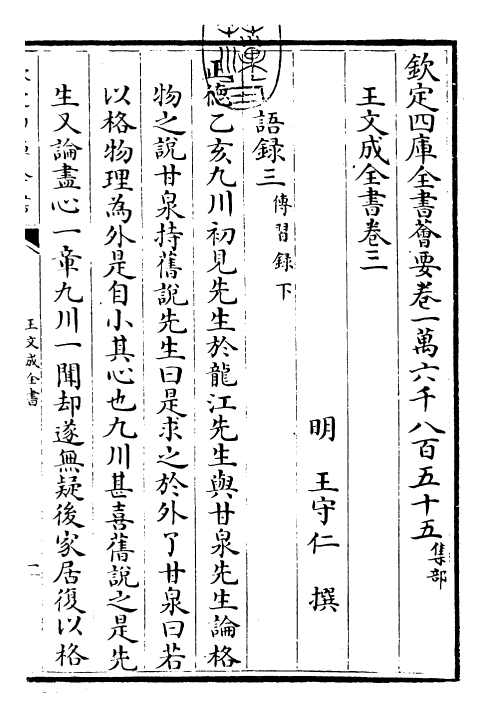 欽定四庫全書薈要卷一萬六千八百五十五集部
王文成全書卷三
明 王守仁 撰
語録三傳習録下
正德乙亥九川初見先生於龍江先生與甘泉先生論格
物之說甘泉持舊說先生曰是求之於外了甘泉曰若
以格物理為外是自小其心也九川甚喜舊說之是先
生又論盡心一章九川一聞却遂無疑後家居復以格
王文成全書
一